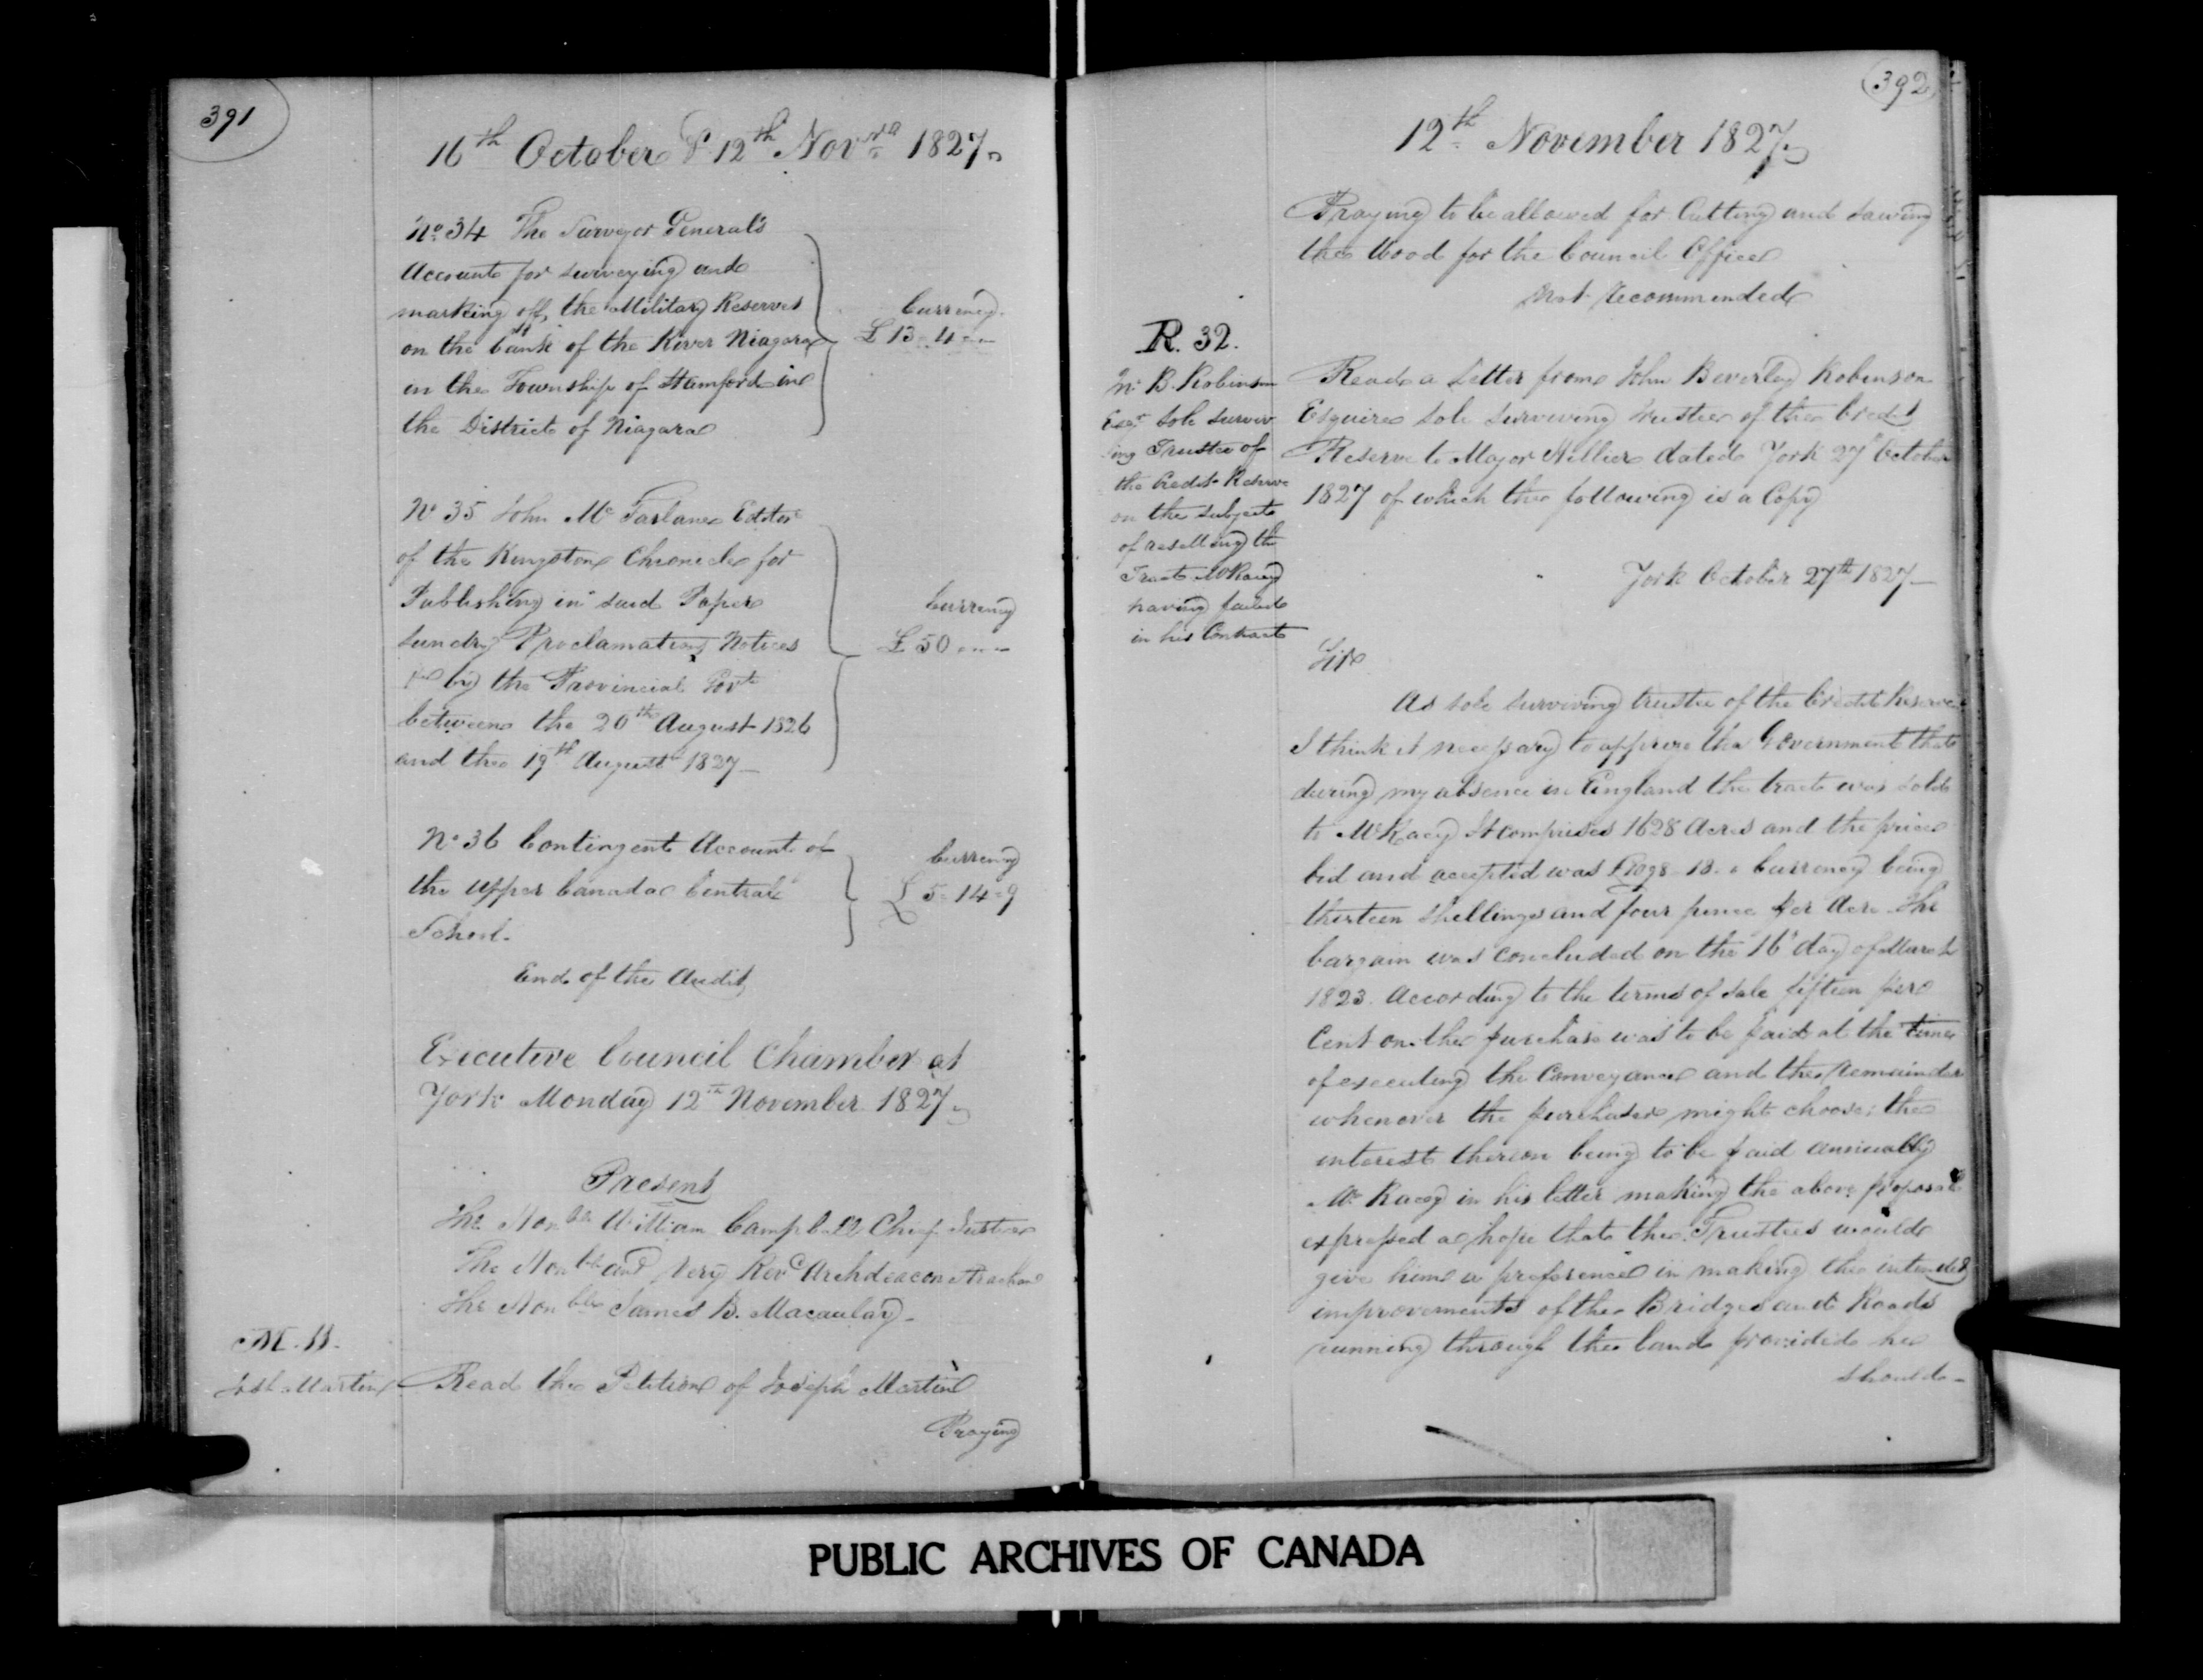 391
16th October & 12th Novr 1827
No 34 The Surveyor General's
Account for surveying and
marking off the Military Reserves
on the bank of the River Niagara
in the Township of Stamford in
the District of Niagara
Currency
£ 13 = 4 = -
No 35 John Mc Farlane Editor
of the Kingston Chronicle for
Publishing in said Paper
sundry Proclamations Notices
&c by the Provincial Govt
between the 20th August 1826
and the 19th August 1827 -
Currency
£ 50 = = -
No 36 Contingent Account of
the Upper Canada Central
School.
Currency
£ 5 = 14 = 9
End of the Audit
Executive Council Chamber at
York Monday 12th November 1827
Present
The Honble William Campbell Chief Justice
The Honble and Very Revd Archdeacon Strachan
The Honble James B. Macaulay -
M. 11.
Josh Martin
Read the Petition of Joseph Martin
Praying
392
12th November 1827
Praying to be allowed for Cutting and Sawing
the Wood for the Council Office
Not Recommended
R. 32.
B. Robinson
Esqr Sole Surviv
ing Trustee of
the Credit Reserve
on the subject
of reselling the
Tract Mr Racey
having failed
in his Contract
Read a Letter from John Beverley Robinson
Esquire sole surviving trustee of the Credit
Reserve to Major Hillier dated York 27th October
1827 of which the following is a Copy
York October 27th 1827 -
Sir
As sole surviving trustee of the Credit Reserve
I think it necessary to apprize the Government that
during my absence in England the tract was sold
to Mr Racey It comprises 1628 Acres and the price
bid and accepted was Currency being
thirteen shillings and four pence per Acre The
bargain was concluded on the 16th day of March
1823. According to the terms of Sale fifteen per
Cent on the purchase was to be paid at the time
of executing the Conveyance and the remainder
whenever the purchaser might choose; the
interest thereon being to be paid annually
Mr Racey in his letter making the above proposal
expressed a hope that the Trustees would
give him a preference in making the intended
improvements of the Bridges and Roads
running through the land provided he
should -
PUBLIC ARCHIVES OF CANADA